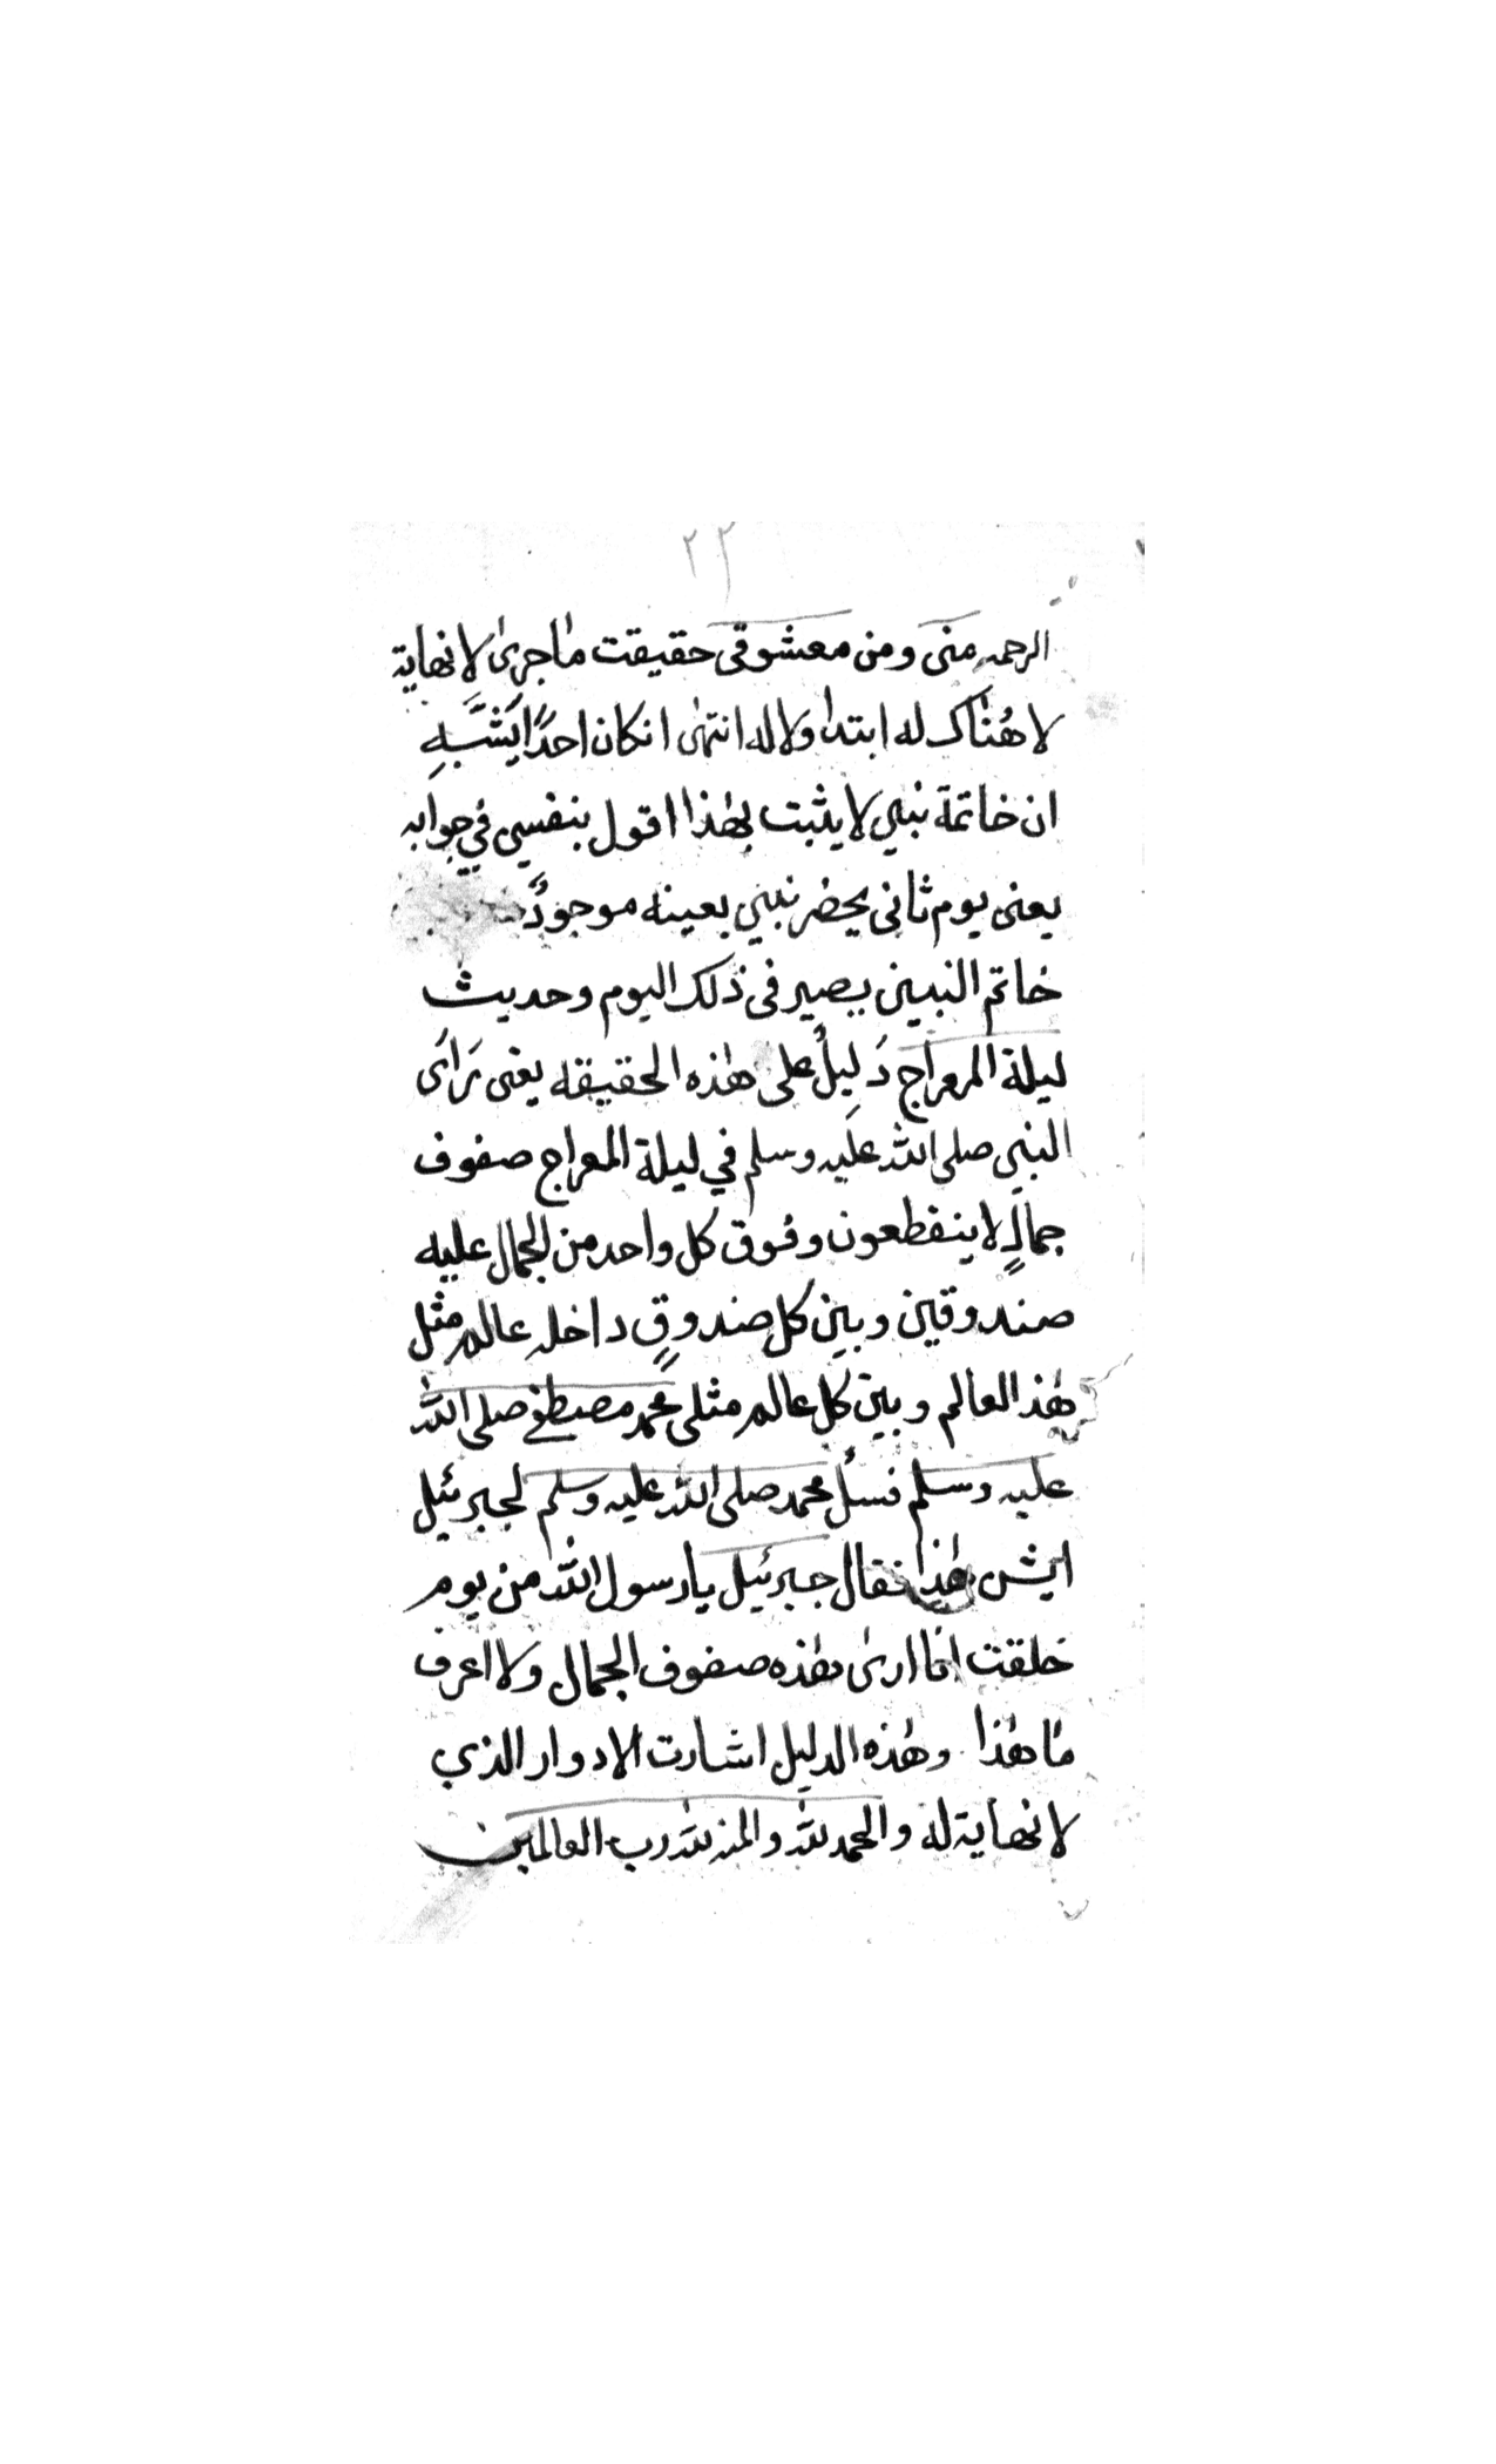 ٢٢
الرحمه منى ومن معشوقى حقيقت ماجرى لا نهاية
لا هُناك له ابتدا ولا له انتهى انكان احدًا يَشبَّه
ان خاتمة نبي لا يثبت بهذا اقول بنفسي في جوابه
يعنى يوم ثانى يحضر نبيي بعينه موجودً
خاتم النبيين يصير فى ذلك اليوم وحديث
ليلة المعراج دَليلُ على هذه الحقيقه يعنى تراى
النبى صلى الله عليه وسلم في ليلة المعراج صفوف
جمالٍ لا ينقطعون وفوق كل واحد من الجمال عليه
صندوقين وبين كل صندوقٍ داخله عالم مثل
هذ العالم وبين كل عالم مثلى محمد مصطفى صلى الله
عليه وسلم فسئل محمد صلى الله عليه وسلم لجبرئيل
ايش هذا فقال جبرئيل يا رسول الله من يوم
خلقت انا ارى هذه صفوف الجمال ولا اعرف
ما هذا وهذه الدليل اشارت الادوار الذي
لا نهاية له والحمد لله والمنه لله رب العالمين